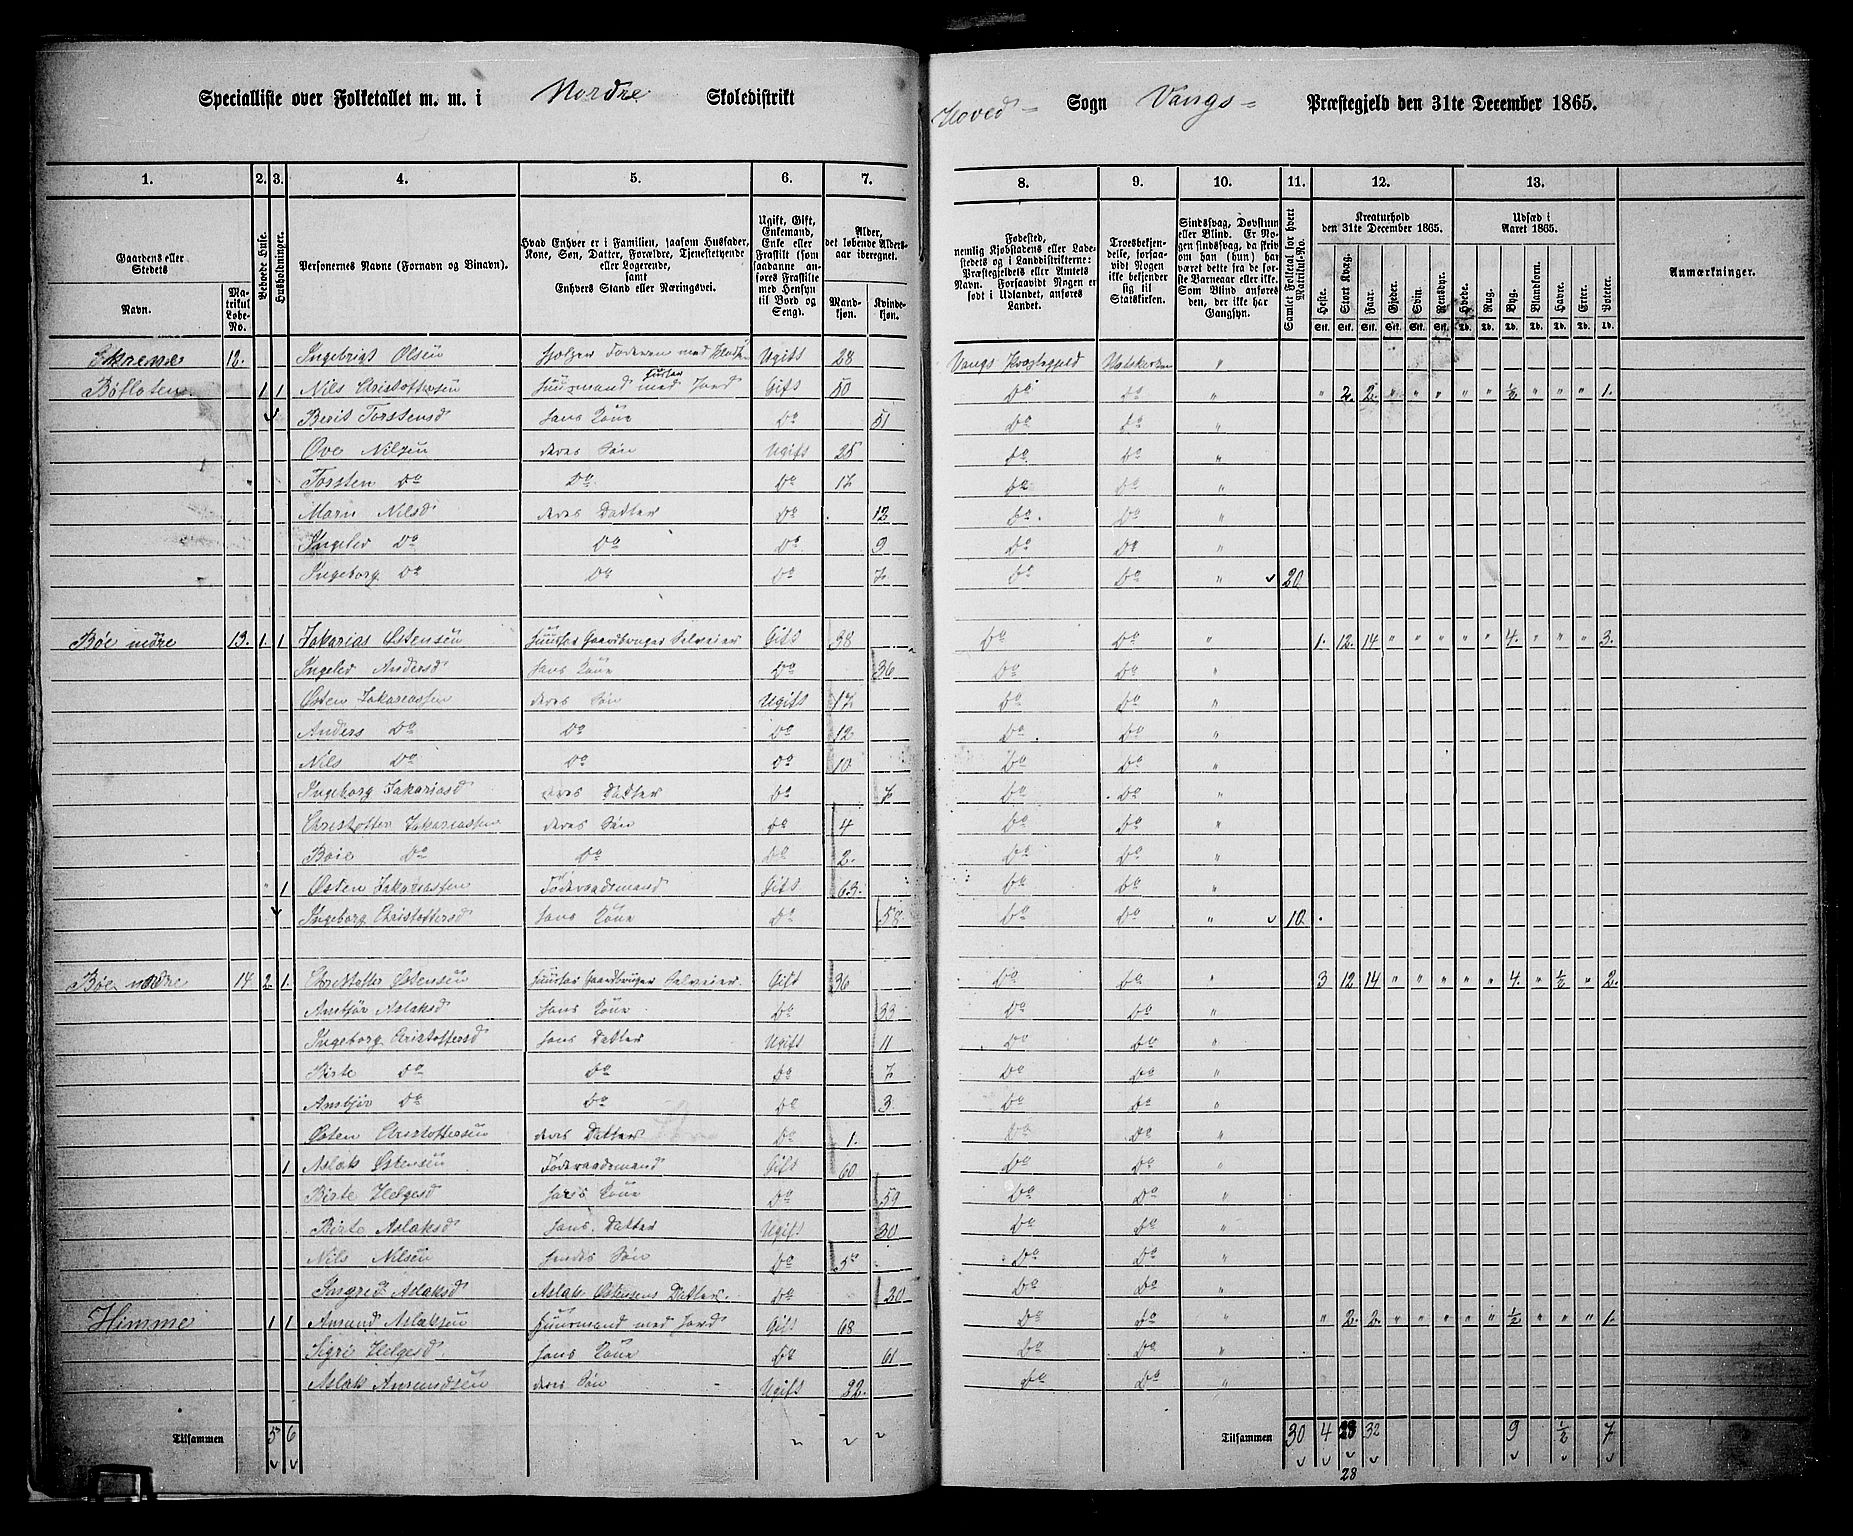 Specialliste over Folketallet m. m. i Nordre Skoledistrikt Hoved- Sogn Vangs- Præstegjeld den 31te December 1865.
1. 2. 3. 4. 5. 6. 7. 8. 9. 10. 11. 12. 13.
Gaardens eller Stedets
Navn.
Matrikul Løbe-No.
Beboede Huse.
Husholdninger.
Personernes Navne (Fornavn og Binavn).
Hvad Enhver er i Familien, saasom Husfader, Kone, Søn, Datter, Forældre, Tjenestetyende eller Logerende, samt Enhvers Stand eller Næringsvei.
Ugift, Gift, Enkemand, Enke eller Fraskilt (som saadanne anføres Fraskilte med Hensyn til Bord og Seng).
Alder, det løbende Aldersaar iberegnet.
Mandkjøn. Kvindekjøn.
Fødested, nemlig Kjøbstadens eller Ladestedets og i Landdistrikterne: Præstegjeldets eller Amtets Navn. Forsaavidt Nogen er født i Udlandet, anføres Landet.
Troesbekjendelse, forsaavidt Nogen ikke bekjender sig til Statskirken.
Sindssvag, Døvstum eller Blind. Er Nogen sindssvag, da skriv om han (hun) har været dette fra de første Barneaar eller ikke. Som Blind anføres den, der ikke har Gangsyn.
Samlet Folketal for hvert Matrikul-No.
Kreaturhold den 31te December 1865.
Heste. Stort Kvæg. Faar. Gjeder. Svin. Rensdyr.
Udsæd i Aaret 1865.
Hvede. Rug. Byg. Blandkorn. Havre. Erter. Poteter.
Anmærkninger.
12. Ingebrigt Olsen Ugift 28 Vangs Præstegjeld "
Bøfloten 1 1 Nils Christoffersen Huusmand med Jord Gift 50 Do Do " " 2. 2. " " " " " ½ " " " 1.
Berit Torstensd hans Kone Do 51 Do Do "
Ove Nilsen deres Søn Ugift 25 Do Do "
Torsten Do Do Do 17 Do Do "
Mari Nilsd deres Datter Do 12 Do Do "
Ingeleif Do Do Do 9 Do Do "
Ingeborg Do Do Do 7 Do Do " 20
Bøe nedre 13. 1. 1 Zakarias Østensen Huusfar Gaardbruger Selveier Gift 38 Do Do " 1. 12. 14 " " " " " 4. " " " 3.
Ingeleif Andersd hans Kone Do 36 Do Do "
Østen Zakariassen deres Søn Ugift 17 Do Do "
Anders Do Do Do 12 Do Do "
Nils Do Do Do 10 Do Do "
Ingeborg Zakariasd deres Datter Do 7 Do Do "
Christoffer Zakariassen deres Søn Do 4 Do Do "
Boie Do Do Do 2. Do Do "
" 1 Østen Zakariassen Føderaadsmand Gift 63. Do Do "
Ingeborg Christoffersd hans Kone Do 58. Do Do " 10
Bøe nordre 14 2 1. Christoffer Østensen Huusfar Gaardbruger Selveier Gift 36 Do Do " 3 12 14 " " " " " 4. " ½ " 2.
Ambjør Aslaksd hans Kone Do 33 Do Do "
Ingeborg Christoffersd hans Datter Ugift 11 Do Do "
Birte Do Do Do 7 Do Do "
Ambjør Do Do Do 3 Do Do "
Østen Christoffersen deres Datter Do 1. Do Do "
1 Aslak Østensen Føderaadsmand Gift 60 Do Do "
Birte Helgesd hans Kone Do 59 Do Do "
Birte Aslaksd hans Datter Ugift 30 Do Do "
Nils Nilsen hendes Søn Do 5 Do Do "
Ingrid Aslaksd Aslak Østensens Datter. Do 20 Do Do "
Himme 1 1 Amund Aslaksen Huusmand med Jord Gift 68 Do Do " " 2. 2. " " " " " ½ " " " 1.
Sigri Helgesd hans Kone Do 61 Do Do "
Aslak Amundsen deres Søn Ugift 22. Do Do "
Tilsammen 5 6 Tilsammen 30 4 32 9 ½ 7
28